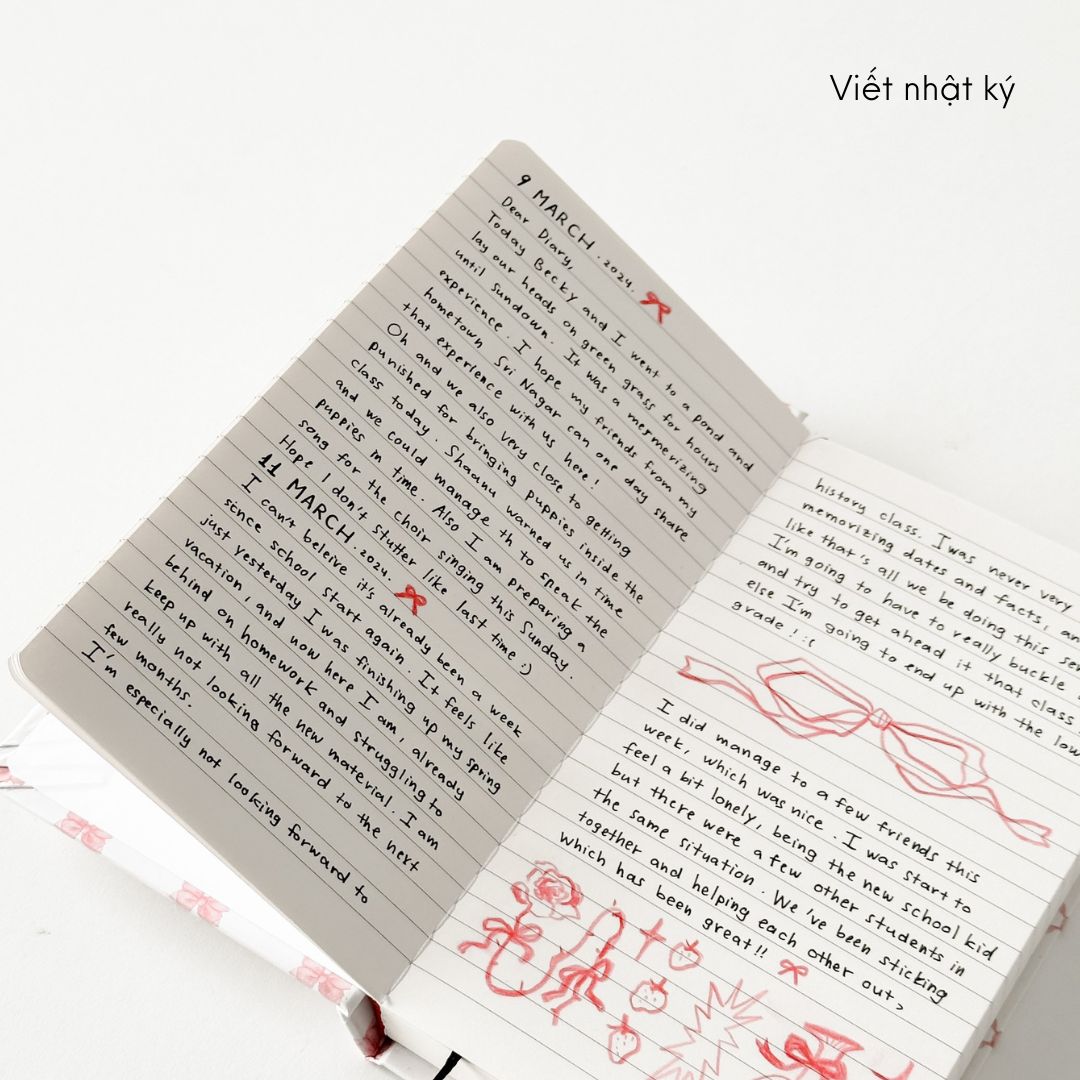 Viết nhật ký
9 MARCH. 2024.
Dear Diary,
Today Becky and I went to a pond and
lay our heads on green grass for hours
until sundown. It was a mesmerizing
experience. I hope my friends from my
hometown Sri Nagar can one day share
that experience with us here!
Oh and we also very close to getting
punished for bringing puppies inside the
class today. Shaanu warned us in time
and we could manage th to sneak the
puppies in time. Also I am preparing a
song for the choir singing this Sunday.
Hope I don't stutter like last time :)
11 MARCH. 2024.
I can't beleive it's already been a week
since school start again. It feels like
just yesterday I was finishing up my spring
vacation, and now here I am, already
behind on homework and struggling to
keep up with all the new material. I am
really not looking forward to the next
few months.
I'm especially not looking forward to
history class. I was never very
memorizing dates and facts, an
like that's all we be doing this se
I'm going to have to really buckle
and try to get ahead it that class
else I'm going to end up with the low
grade! :(
I did manage to a few friends this
week, which was nice. I was start to
feel a bit lonely, being the new school kid
but there were a few other students in
the same situation. We've been sticking
together and helping each other out,
which has been great!!